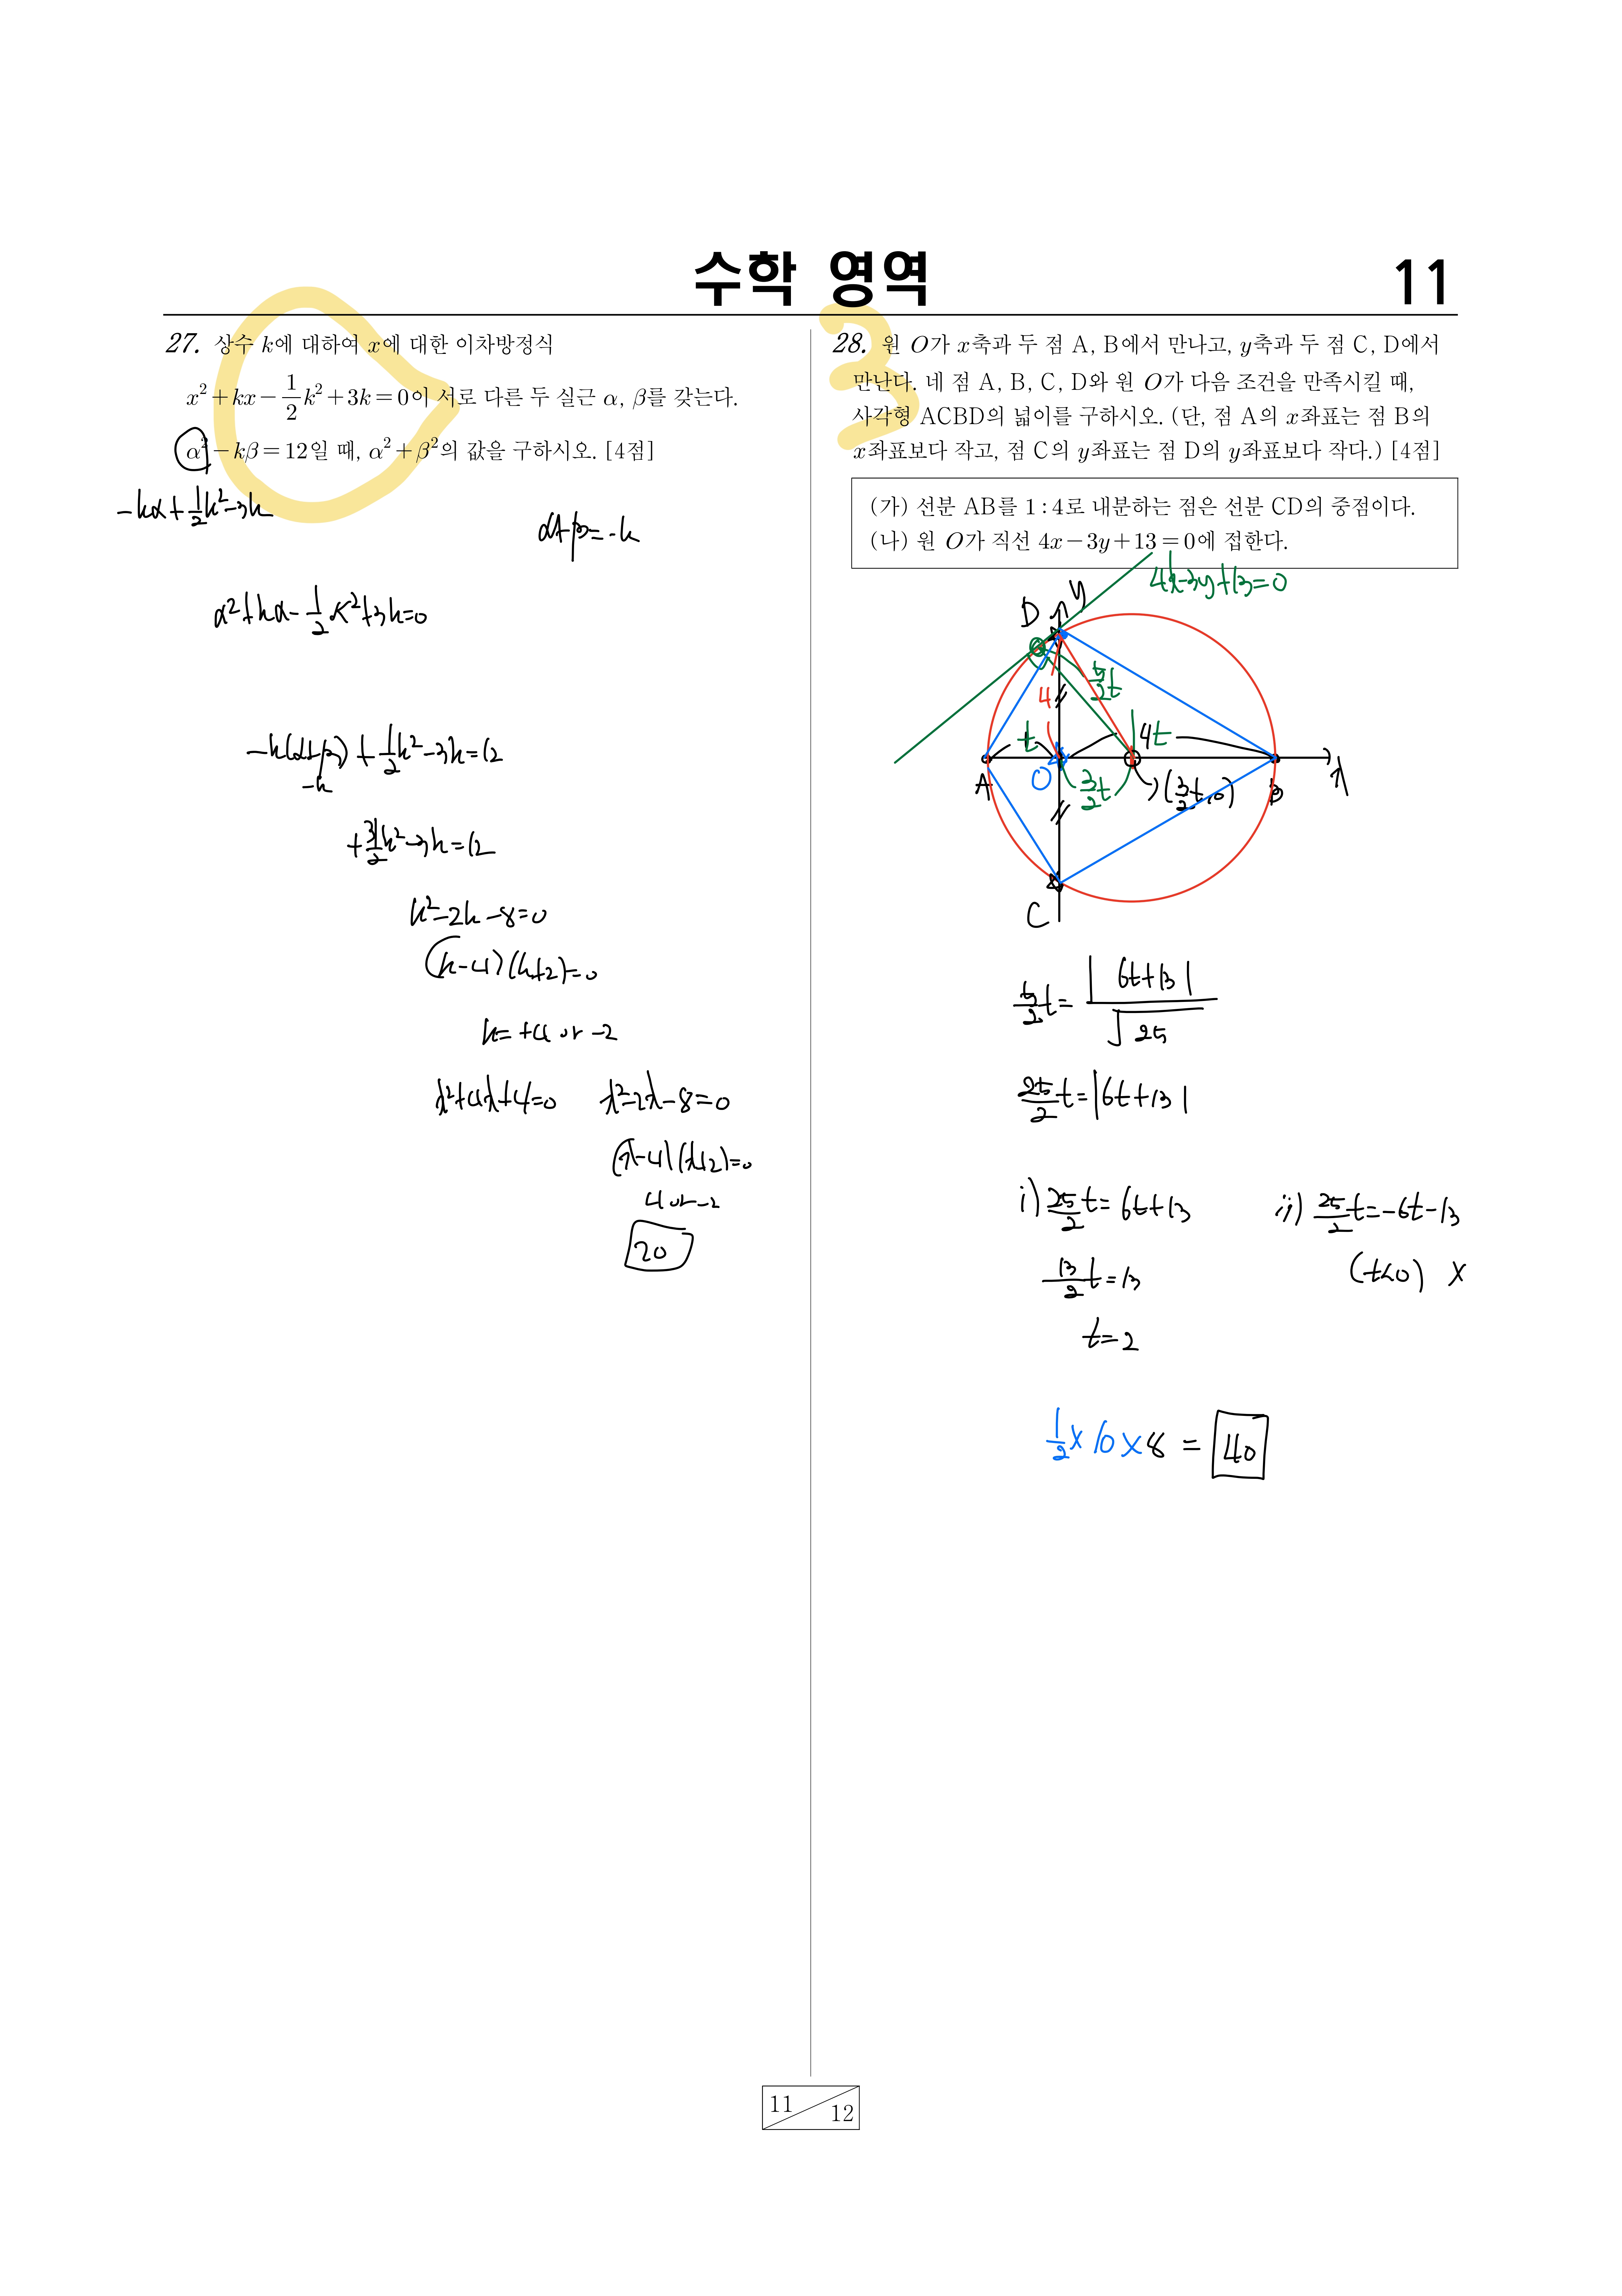 수학 영역
11
27. 상수 k에 대하여 x에 대한 이차방정식
x²+kx−\frac{1}{2}k²+3k=0이 서로 다른 두 실근 α, β를 갖는다.
α²−kβ=12일 때, α²+β²의 값을 구하시오. [4점]
-kα+\frac{1}{2}k²-3k
α+β=-k
α²+kα-\frac{1}{2}k²+3k=0
-k(α+β)+\frac{1}{2}k²-3k=12
-k
+\frac{3}{2}k²-3k=12
k²-2k-8=0
(k-4)(k+2)=0
k=+4 or -2
x²+4x+4=0 x²-2x-8=0
(x-4)(x+2)=0
4 or -2
20
3
28. 원 O가 x축과 두 점 A, B에서 만나고, y축과 두 점 C, D에서
만난다. 네 점 A, B, C, D와 원 O가 다음 조건을 만족시킬 때,
사각형 ACBD의 넓이를 구하시오. (단, 점 A의 x좌표는 점 B의
x좌표보다 작고, 점 C의 y좌표는 점 D의 y좌표보다 작다.) [4점]
(가) 선분 AB를 1:4로 내분하는 점은 선분 CD의 중점이다.
(나) 원 O가 직선 4x−3y+13=0에 접한다.
4x-3y+13=0
D y
\frac{5}{2}t
4
t 4t
A O \frac{3}{2}t (\frac{3}{2}t, 0) B x
C
\frac{5}{2}t=\frac{|6t+13|}{\sqrt{25}}
\frac{25}{2}t=|6t+13|
i) \frac{25}{2}t=6t+13 ii) \frac{25}{2}t=-6t-13
\frac{13}{2}t=13 (t<0) X
t=2
\frac{1}{2}×10×8=40
11
12